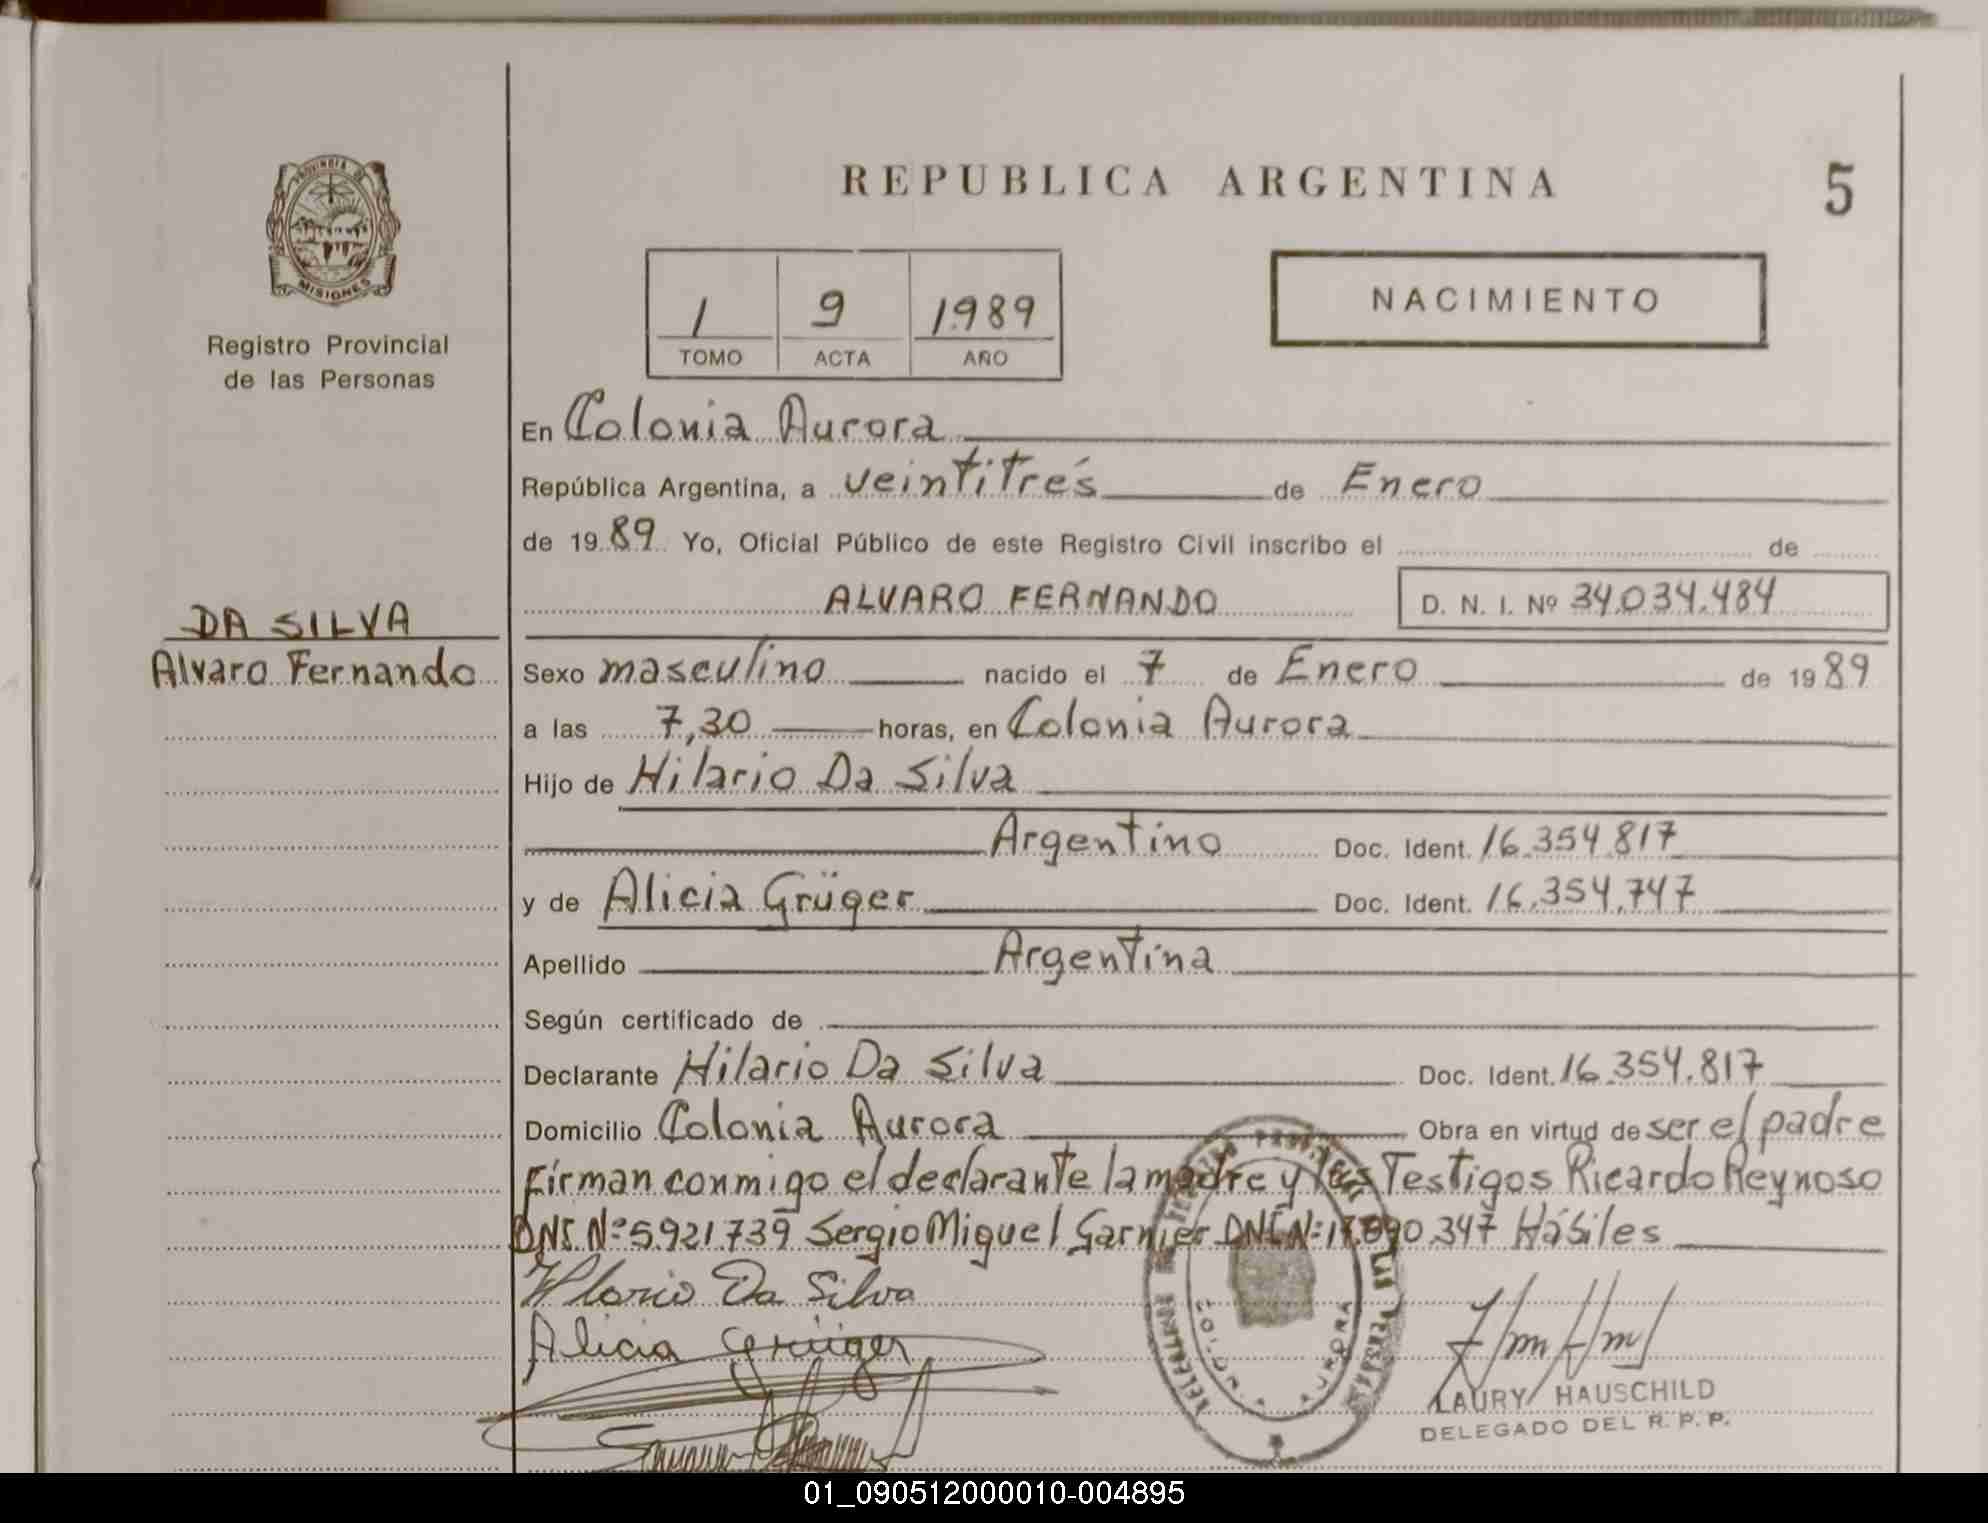 REPUBLICA ARGENTINA
5
PROVINCIA DE
MISIONES
Registro Provincial
de las Personas
1 9 1989
TOMO ACTA AÑO
NACIMIENTO
En Colonia Aurora
República Argentina, a veintitrés de Enero
de 1989 Yo, Oficial Público de este Registro Civil inscribo el de
ALVARO FERNANDO D. N. I. Nº 34.034.484
DA SILVA
Alvaro Fernando
Sexo masculino nacido el 7 de Enero de 1989
a las 7,30 horas, en Colonia Aurora
Hijo de Hilario Da Silva
Argentino Doc. Ident. 16.354.817
y de Alicia Grüger Doc. Ident. 16.354.747
Apellido Argentina
Según certificado de
Declarante Hilario Da Silva Doc. Ident. 16.354.817
Domicilio Colonia Aurora Obra en virtud de ser el padre
Firman conmigo el declarante la madre y los Testigos Ricardo Reynoso
DNI. Nº 5.921.739 Sergio Miguel Garnier DNI. Nº 17.890.347 Hábiles
Hlario Da Silva
Alicia Grüger
AURORA
LAURY HAUSCHILD
DELEGADO DEL R. P. P.
01_090512000010-004895